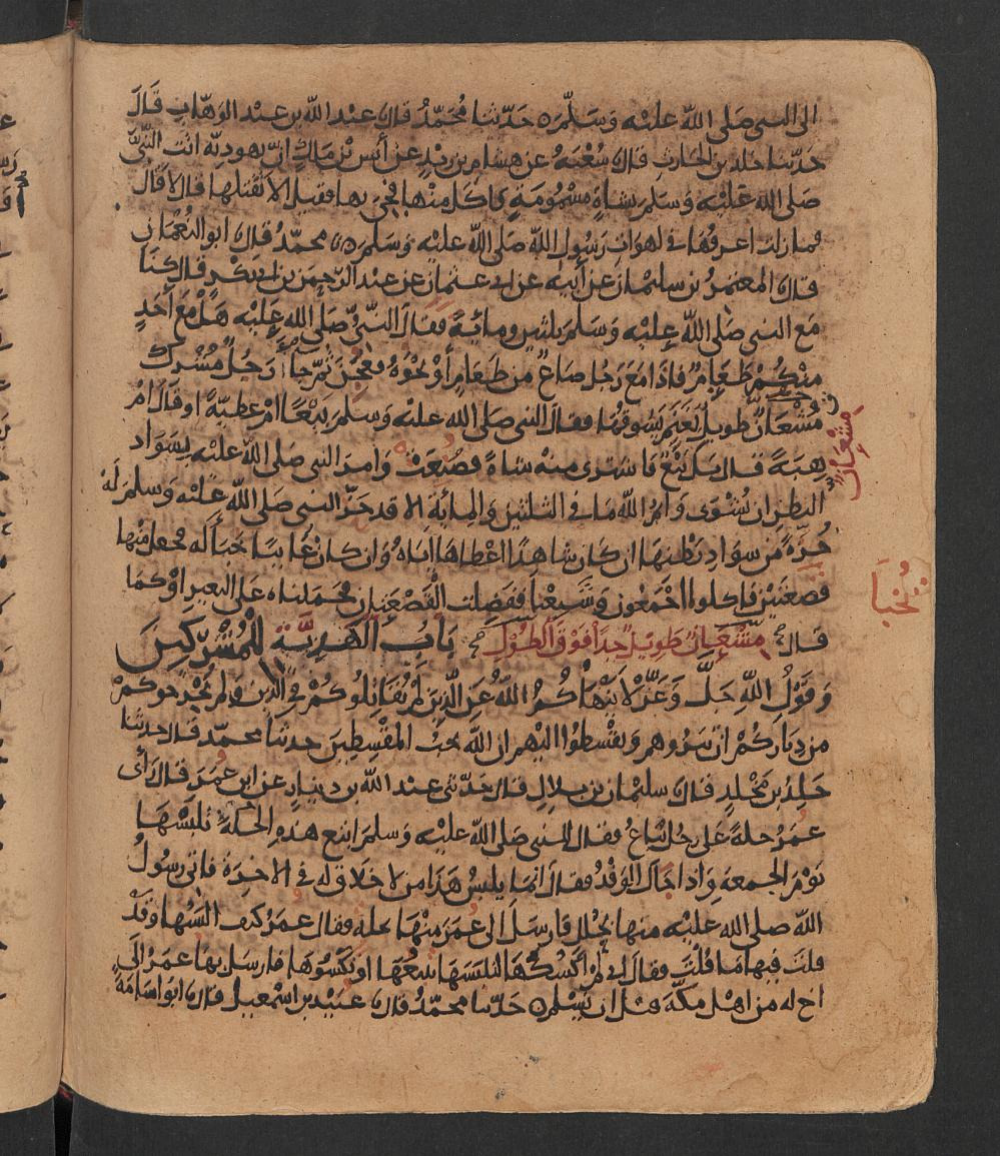 الى النبي صَلى اللهُ عليْه وَسَلّمَ ه حَدّثنا مُحَمّدٌ قال عبْد الله بن عبْد الوَهّاب قَالَ
حَدّثنا خلد بن الحارث قال شُعْبَةُ عن هشام بن زيْدٍ عن أنَس بْن مَالكٍ انّ يهوديّه اتت النّبيّ
صَلى الله عَليْه وَسَلم بشاةٍ مسْمُومَةٍ فاكل منْها فجيَ بها فقيل الا تقتلها قال لا قَالَ
فما زلت اعرفُها في لهوات رَسُول اللهِ صَلى اللهُ عليْه وَسَلم ه محمّدٌ قال ابو النُعْمان
قال المعتمرُ بن سليْمان عن أبيْه عن ابي عثمان عن عبْد الرّحمن بن ابي بكر قال كنا
مَع النبي صَلى اللهُ عليْه وَسَلم ثلثين ومائةً فقالَ النّبيُّ صَلى الله عَليْه هَلْ مَع أحَدٍ
منكُمْ طَعَامٌ فاذا مَعَ رَجُل صَاعٌ من طَعَامٍ أوْ نحْوُهُ فعُجنَ ثمّ جا رَجُلٌ مُشْركٌ
مُشْعَانٌّ طويلٌ بغَنَمٍ يَسُوقُهَا فقالَ النبي صَلى الله عليْه وَسَلم بَيْعًا امْ عطيّةً او قَالَ امْ
مُشْعَانٌّ
هِبَةً قال بَلْ بَيْعٌ فاشترى منْه شاةً فصُنِعَتْ وَامرَ النبي صَلى اللهُ عليْه بسَوَاد
البطن ان يُشْوَى وَايْمُ الله مَا في الثلثين وَالمائة الا قد حَزّ النبي صَلى اللهُ عليْه وَسلم لهُ
حُزّةً من سوَاد بَطْنهَا ان كان شاهدًا اعْطاهَا ايّاهُ وان كان غائبًا خَبَأ لَه فجعل منْها
قصْعَتَيْن فاكلوا اجْمَعُون وَشَبِعْنَا ففَضلت القَصْعَتان فحَمَلناه على البعير اوْ كمَا
قالَ مُشْعَانٌّ طَويلٌ جدًا فَوْقَ الطُّول بَابُ الهَديَّة للمُشْركينَ
وَقوْلُ الله جَلّ وَعَزّ لا يَنْهَاكُمُ اللهُ عَنِ الّذِينَ لَمْ يُقَاتِلُوكُمْ فِي الدّينِ وَلَمْ يُخْرِجُوكُمْ
من ديَاركُمْ ان تبَرّوهم وَتقْسطُوا اليْهم ان الله يحبُ المقْسِطِينَ حدثنا محمّد قال حدثنا
خَلِدُ بن مَخْلَدٍ قال سليْمان بن بلالٍ قال حَدّثني عبْد الله بن دينارٍ عن ابن عمَرَ قال رأى
عمَرُ حلةً عَلى رجل تُبَاعُ فقال للنبي صَلى اللهُ عليْه وَسلم ابتع هَذه الحلةَ تلبَسْهَا
يوْمَ الجمعَة وَاذا جَاكَ الوَفدُ فقالَ انمَا يلبسُ هَذا من لا خلَاق له في الاخرَة فاتي رَسُولُ
الله صلى الله عليْه منها بحُلل فارسَلَ الى عُمَرَ منْهَا بحلة فقال عمَرُ كيف البَسُها وقدْ
قلتَ فيها مَا قُلْتَ فقالَ اني لمْ اكسُكهَا لتلبَسَهَا تبيعُهَا او تكْسُوهَا فارسل بهَا عمَرُ الَى
اخ له من اهْل مكّةَ قبل ان يُسْلم ه حَدّثنا محمّدٌ قال عبَيْد بن اسْمعيل قال ابو اسَامةَ